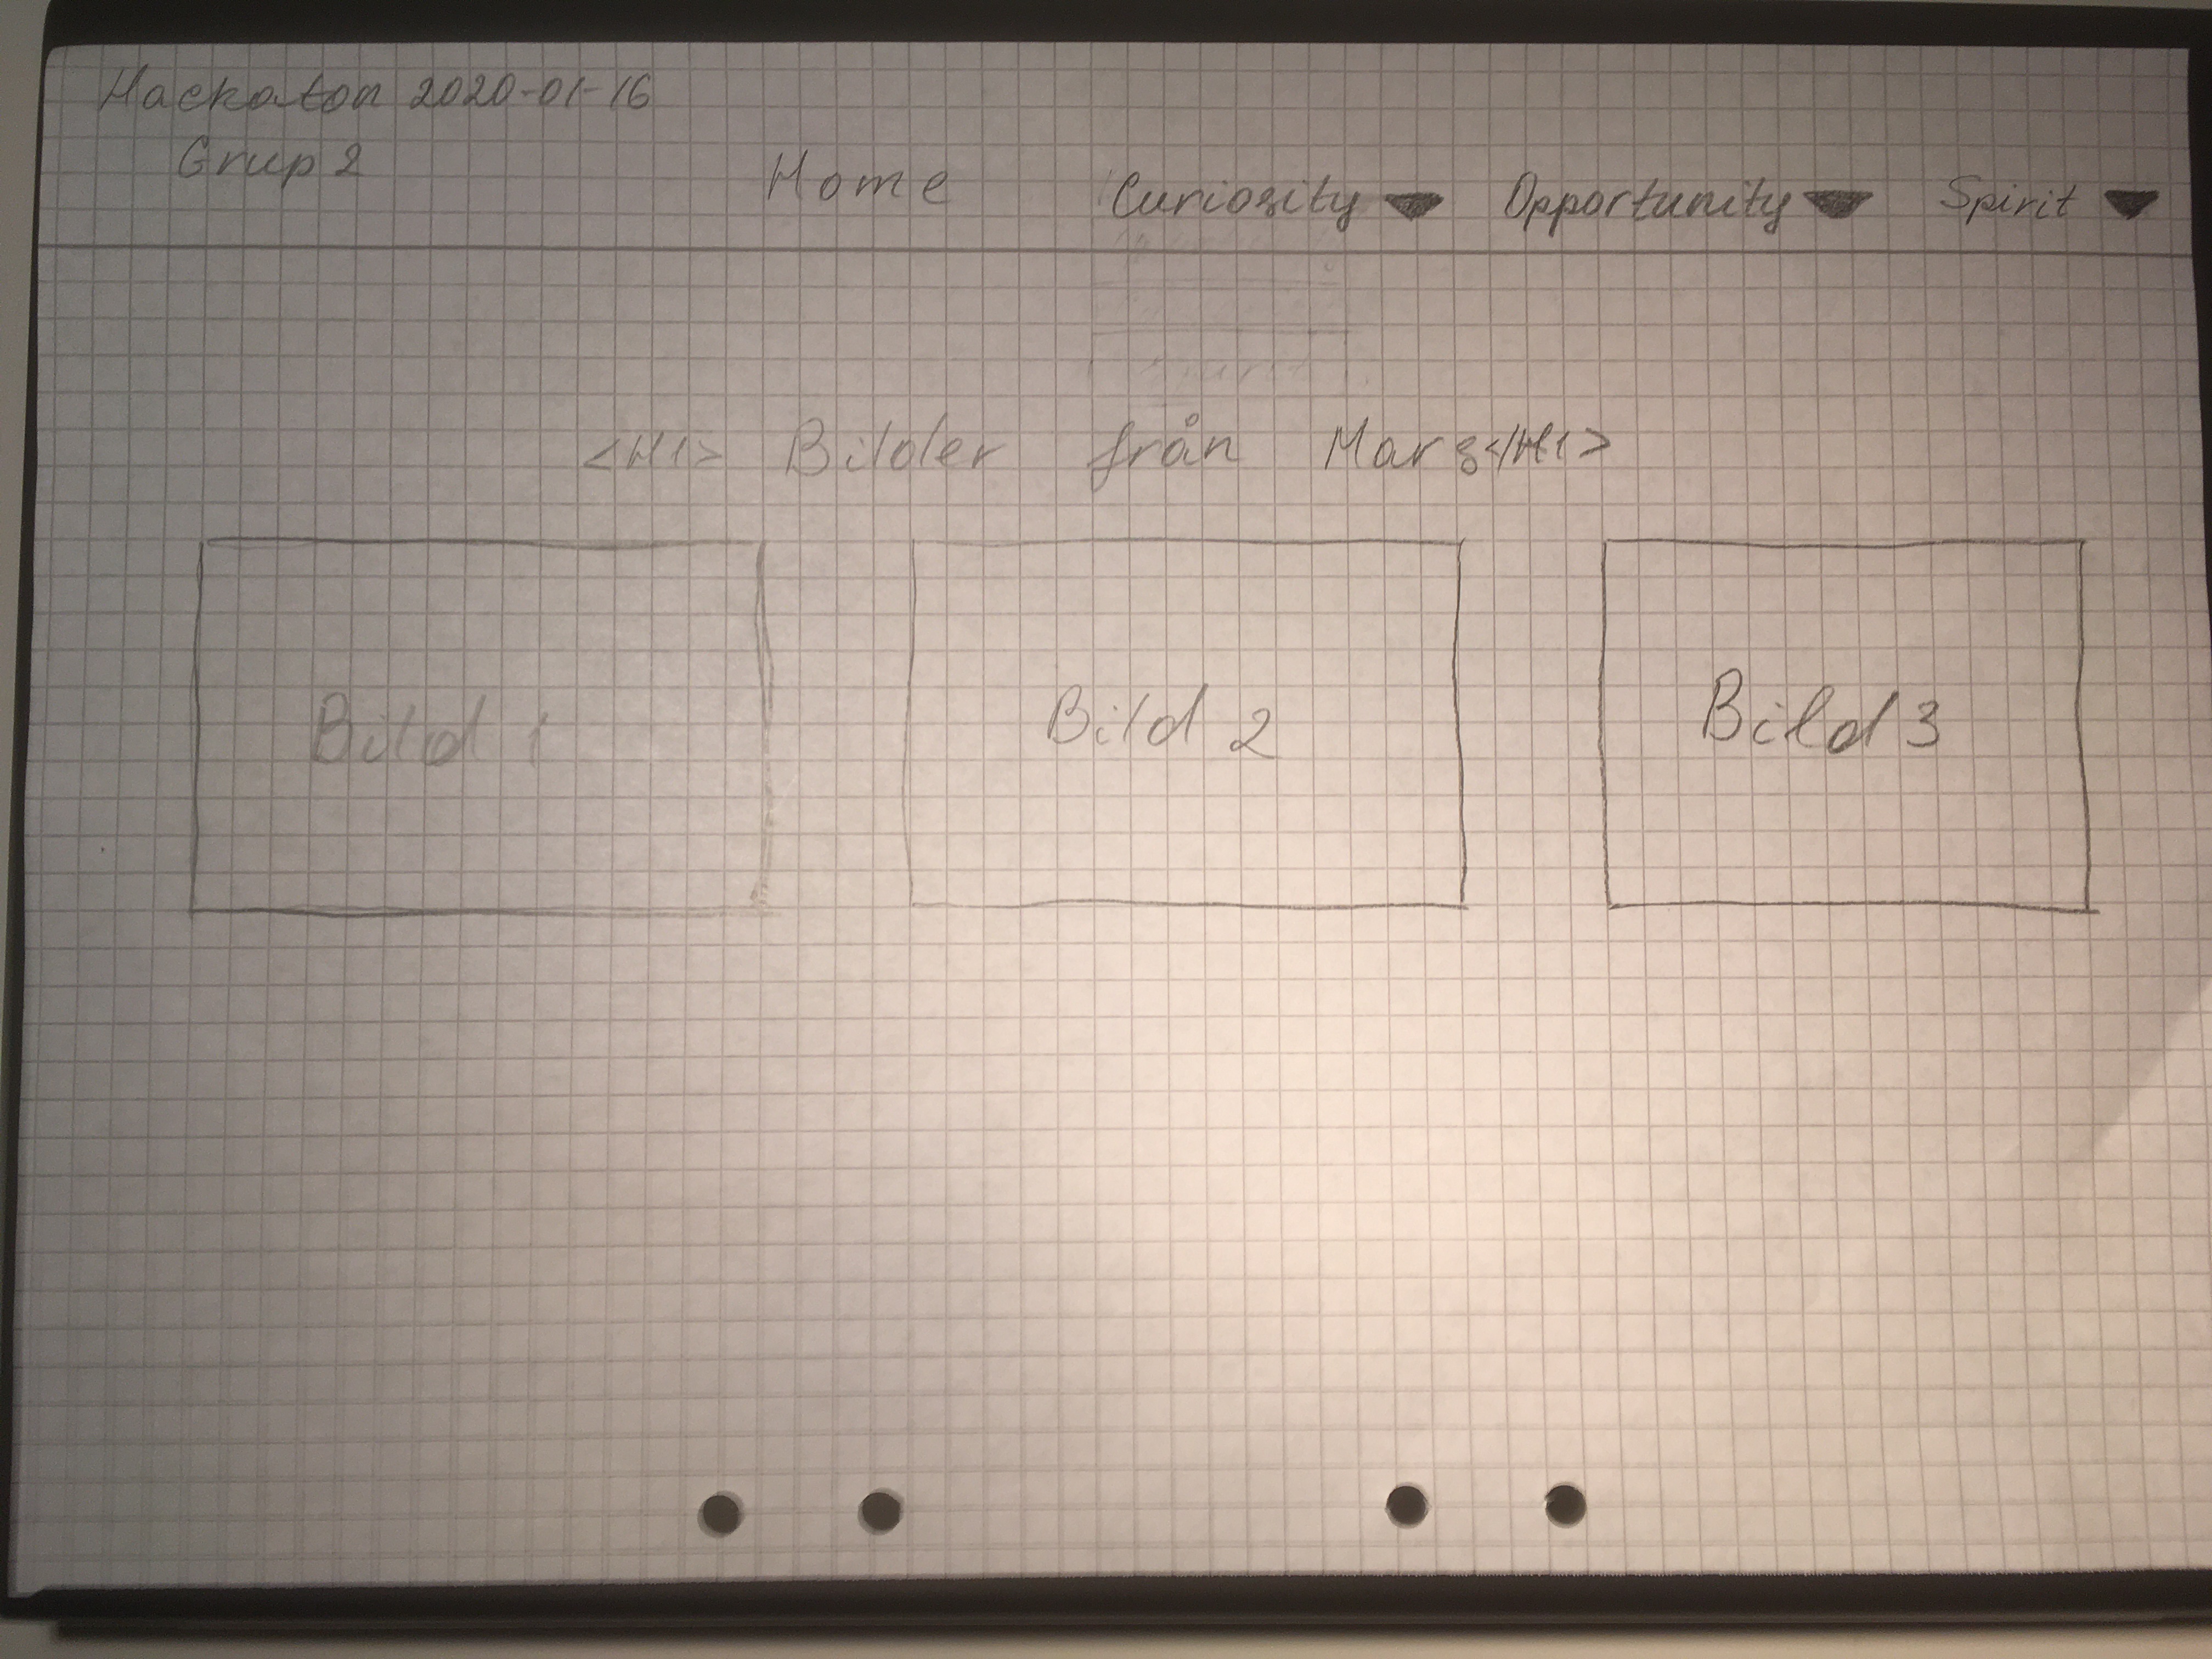 Hackaton 2020-01-16
Grup 2
Home Curiosity Opportunity Spirit
Spirit
<H1> Bilder från Mars </H1>
Bild 1 Bild 2 Bild 3